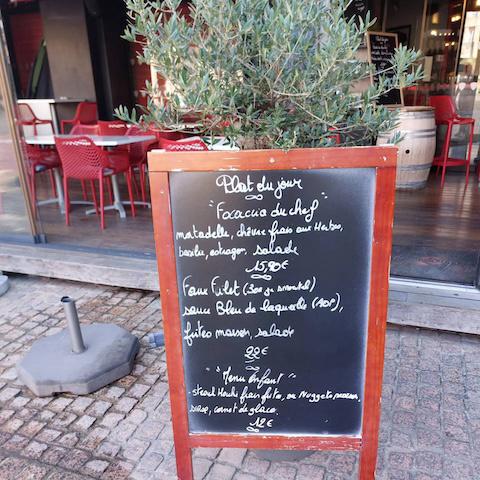 Plat du jour
"Focaccia du chef"
mortadelle, chèvre frais aux Herbes,
basilic, estragon, salade
15,90€
Faux Filet (300 gr
sauce Bleu de laqueuille (AOP),
frites maison, salade
22€
"Menu enfant"
- steak Haché frais frites, ou Nuggets maison,
sirop, cornet de glace.
12€